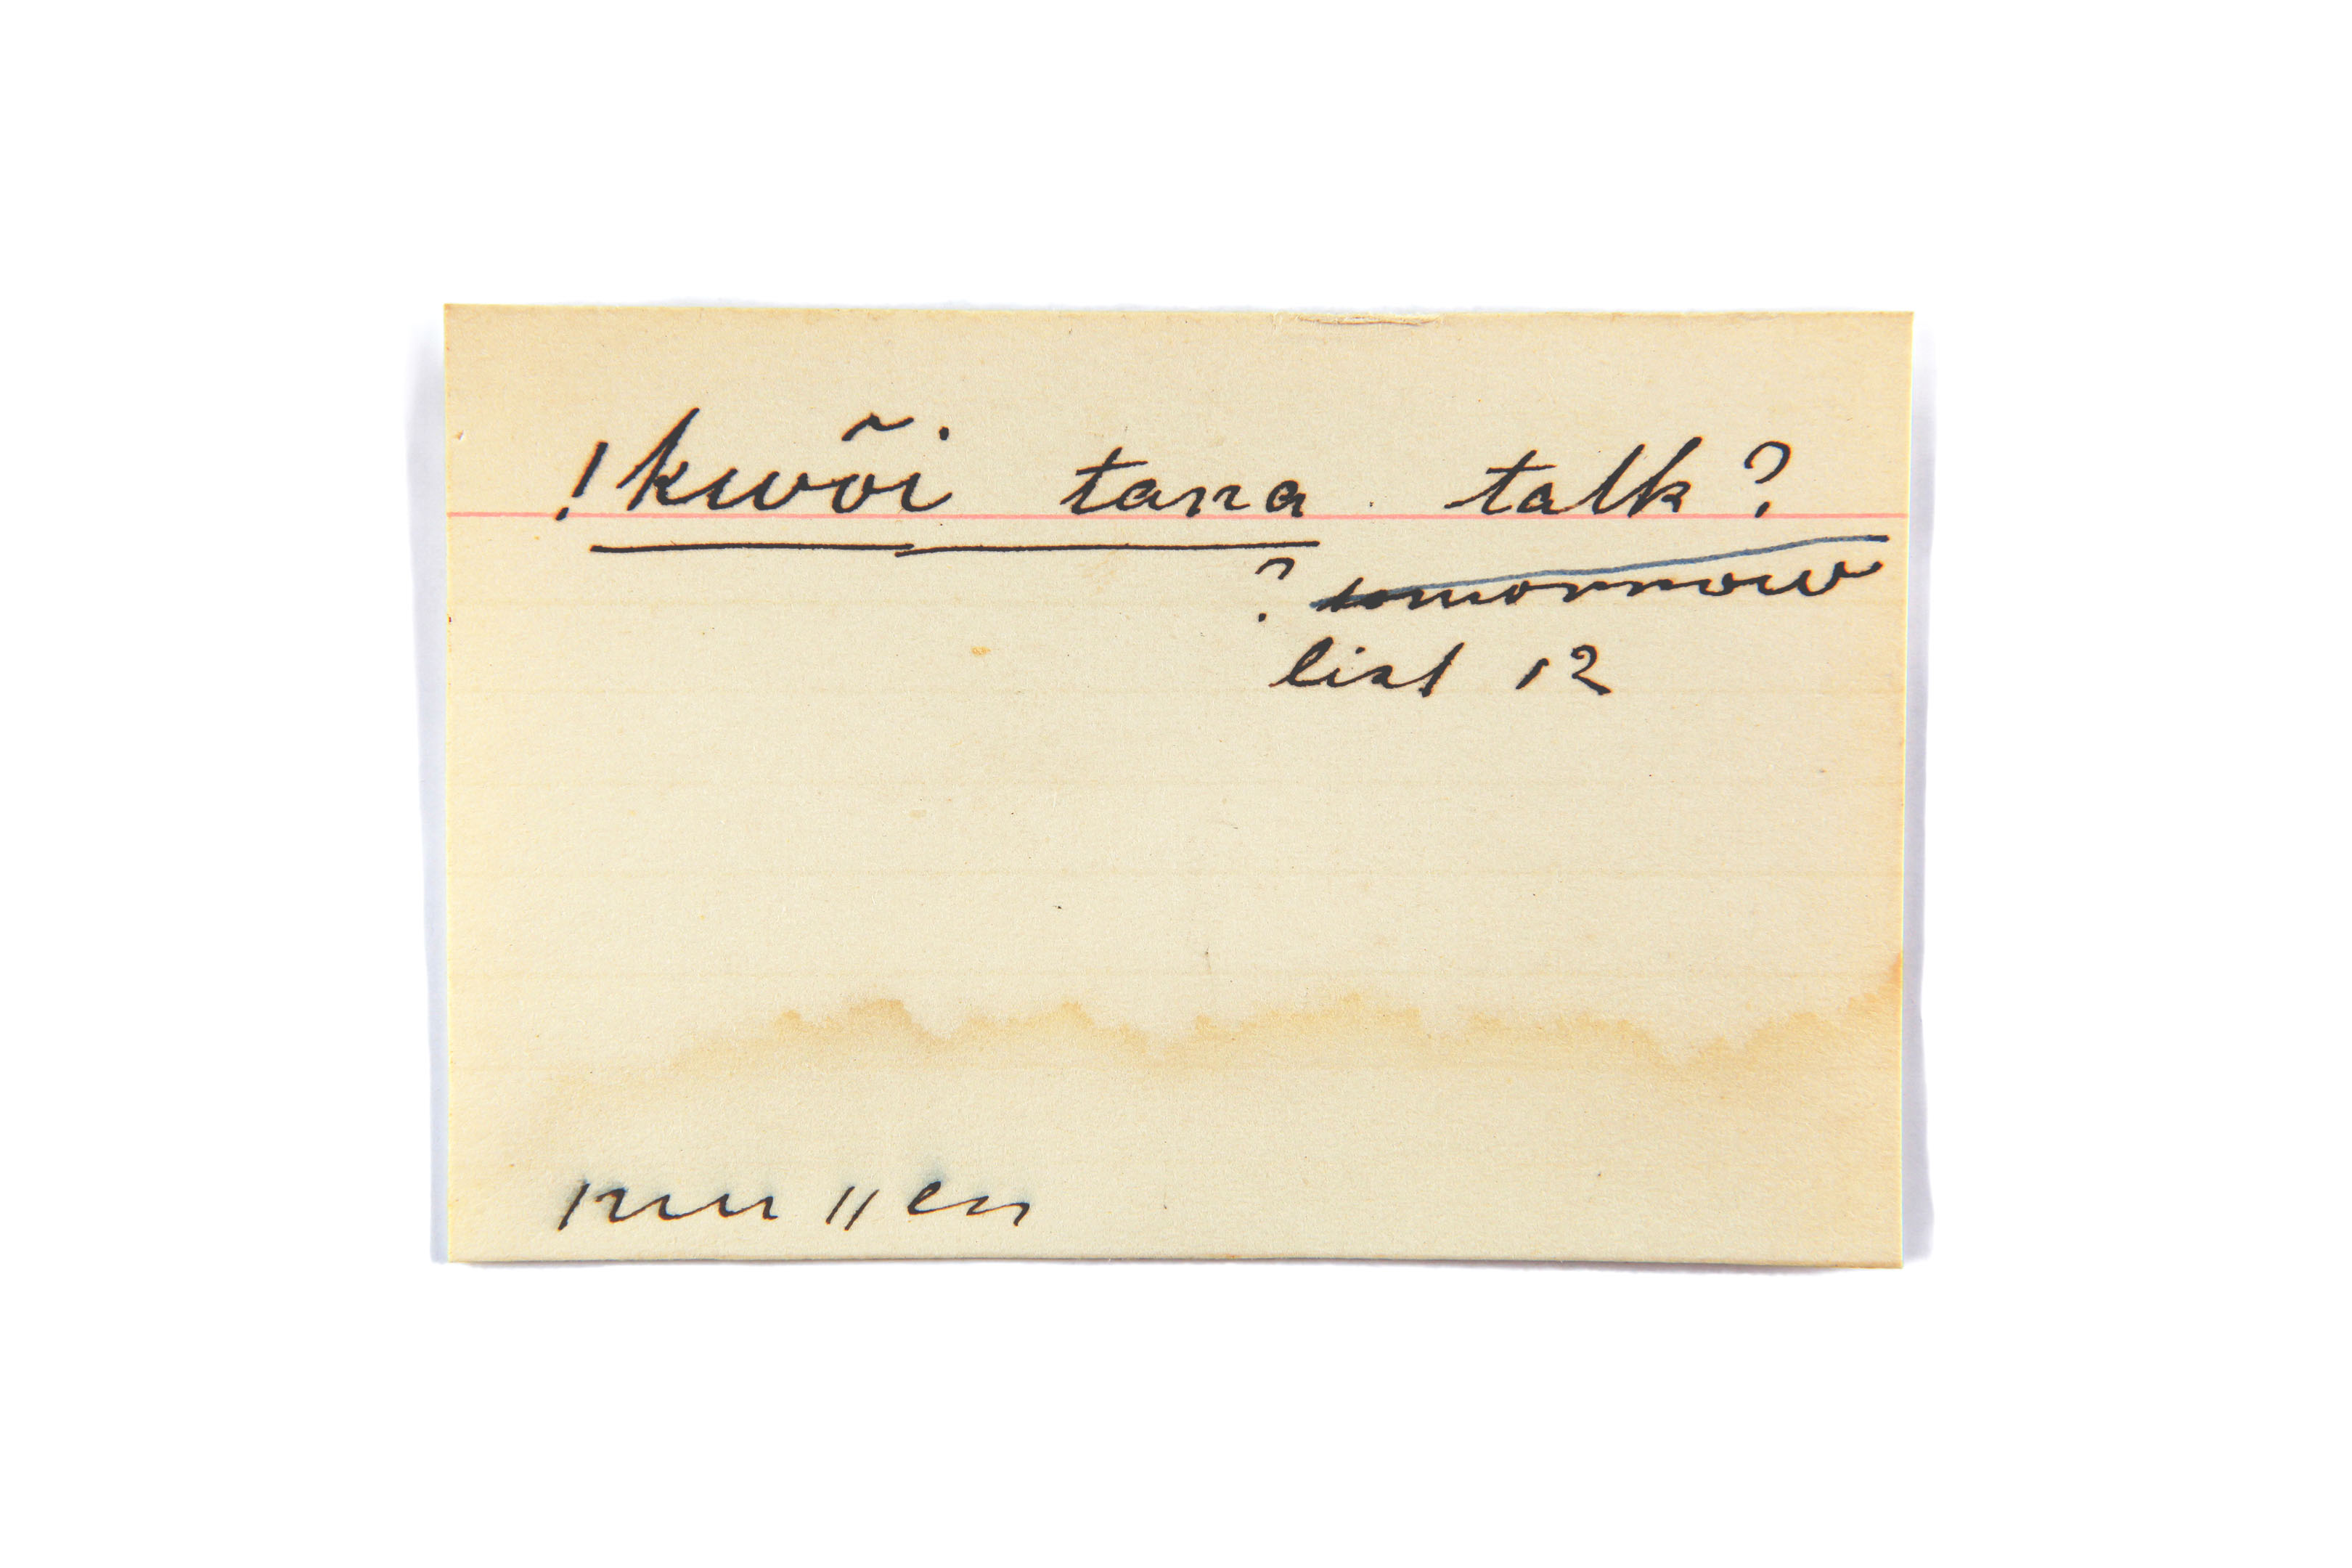 !kwõi tana talk?
? tomorrow
list 12
|nu ǁen